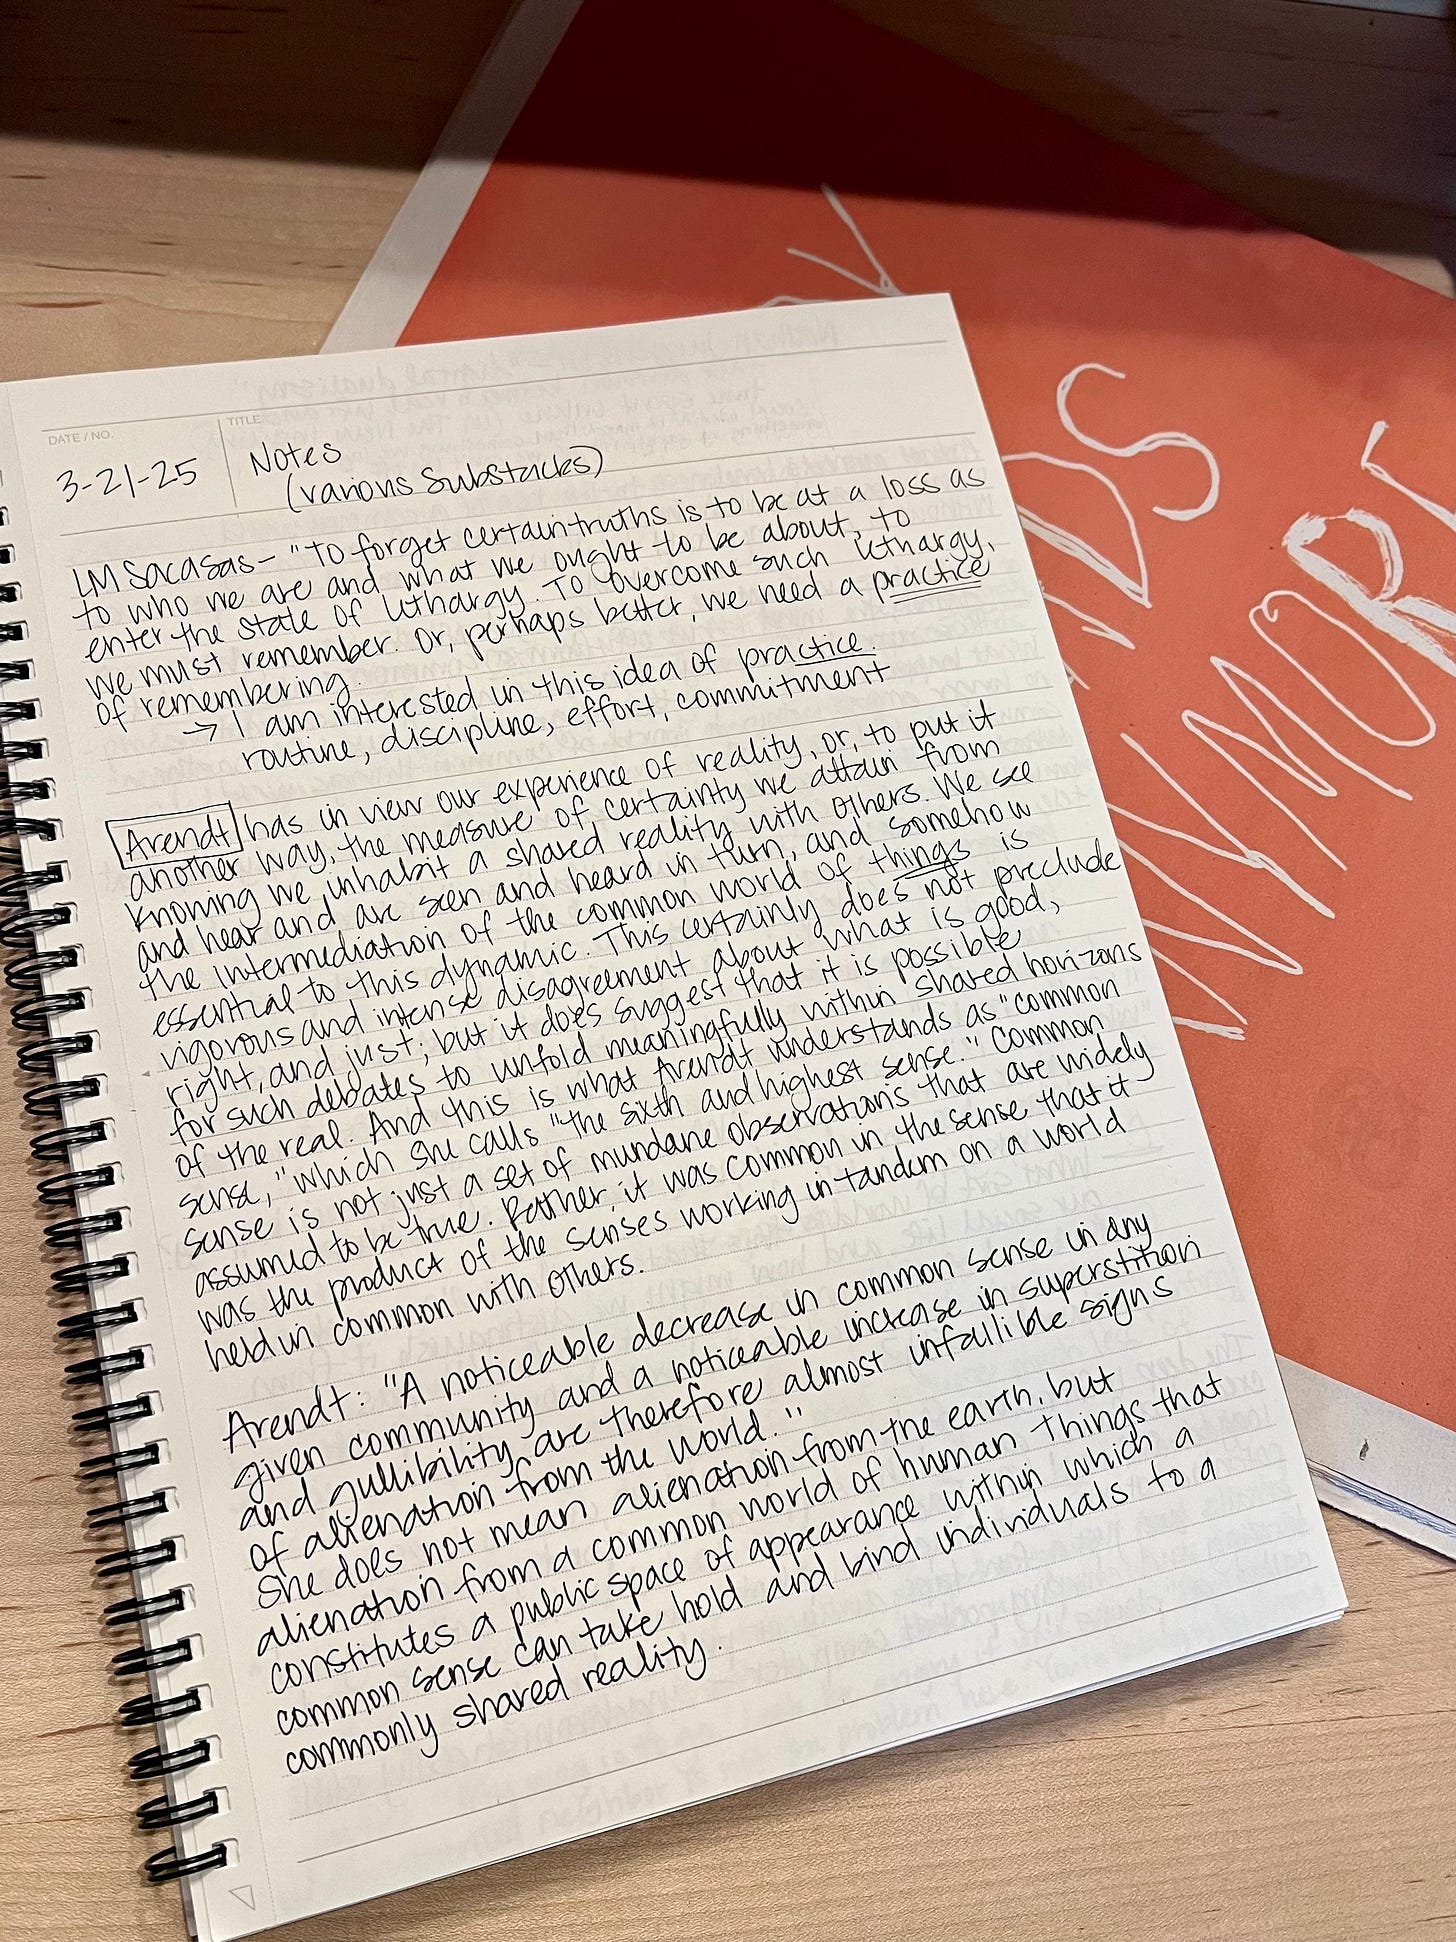 DATE / NO.
TITLE
3-21-25
Notes
(various Substacks)
LM Sacasas- "To forget certain truths is to be at a loss as
to who we are and what we ought to be about, to
enter the state of lethargy. To overcome such lethargy,
we must remember. Or, perhaps better, we need a practice
of remembering.
→ I am interested in this idea of practice.
routine, discipline, effort, commitment
Arendt has in view our experience of reality, or, to put it
another way, the measure of certainty we attain from
knowing we inhabit a shared reality with others. We see
and hear and are seen and heard in turn, and somehow
the intermediation of the common world of things is
essential to this dynamic. This certainly does not preclude
vigorous and intense disagreement about what is good,
right, and just; but it does suggest that it is possible
for such debates to unfold meaningfully within shared horizons
of the real. And this is what Arendt understands as "common
sense," which she calls "the sixth and highest sense." Common
sense is not just a set of mundane observations that are widely
assumed to be true. Rather, it was common in the sense that it
was the product of the senses working in tandem on a world
held in common with others.
Arendt: "A noticeable decrease in common sense in any
given community and a noticeable increase in superstition
and gullibility are therefore almost infallible signs
of alienation from the world."
She does not mean alienation from the earth, but
alienation from a common world of human things that
constitutes a public space of appearance within which a
common sense can take hold and bind individuals to a
commonly shared reality.